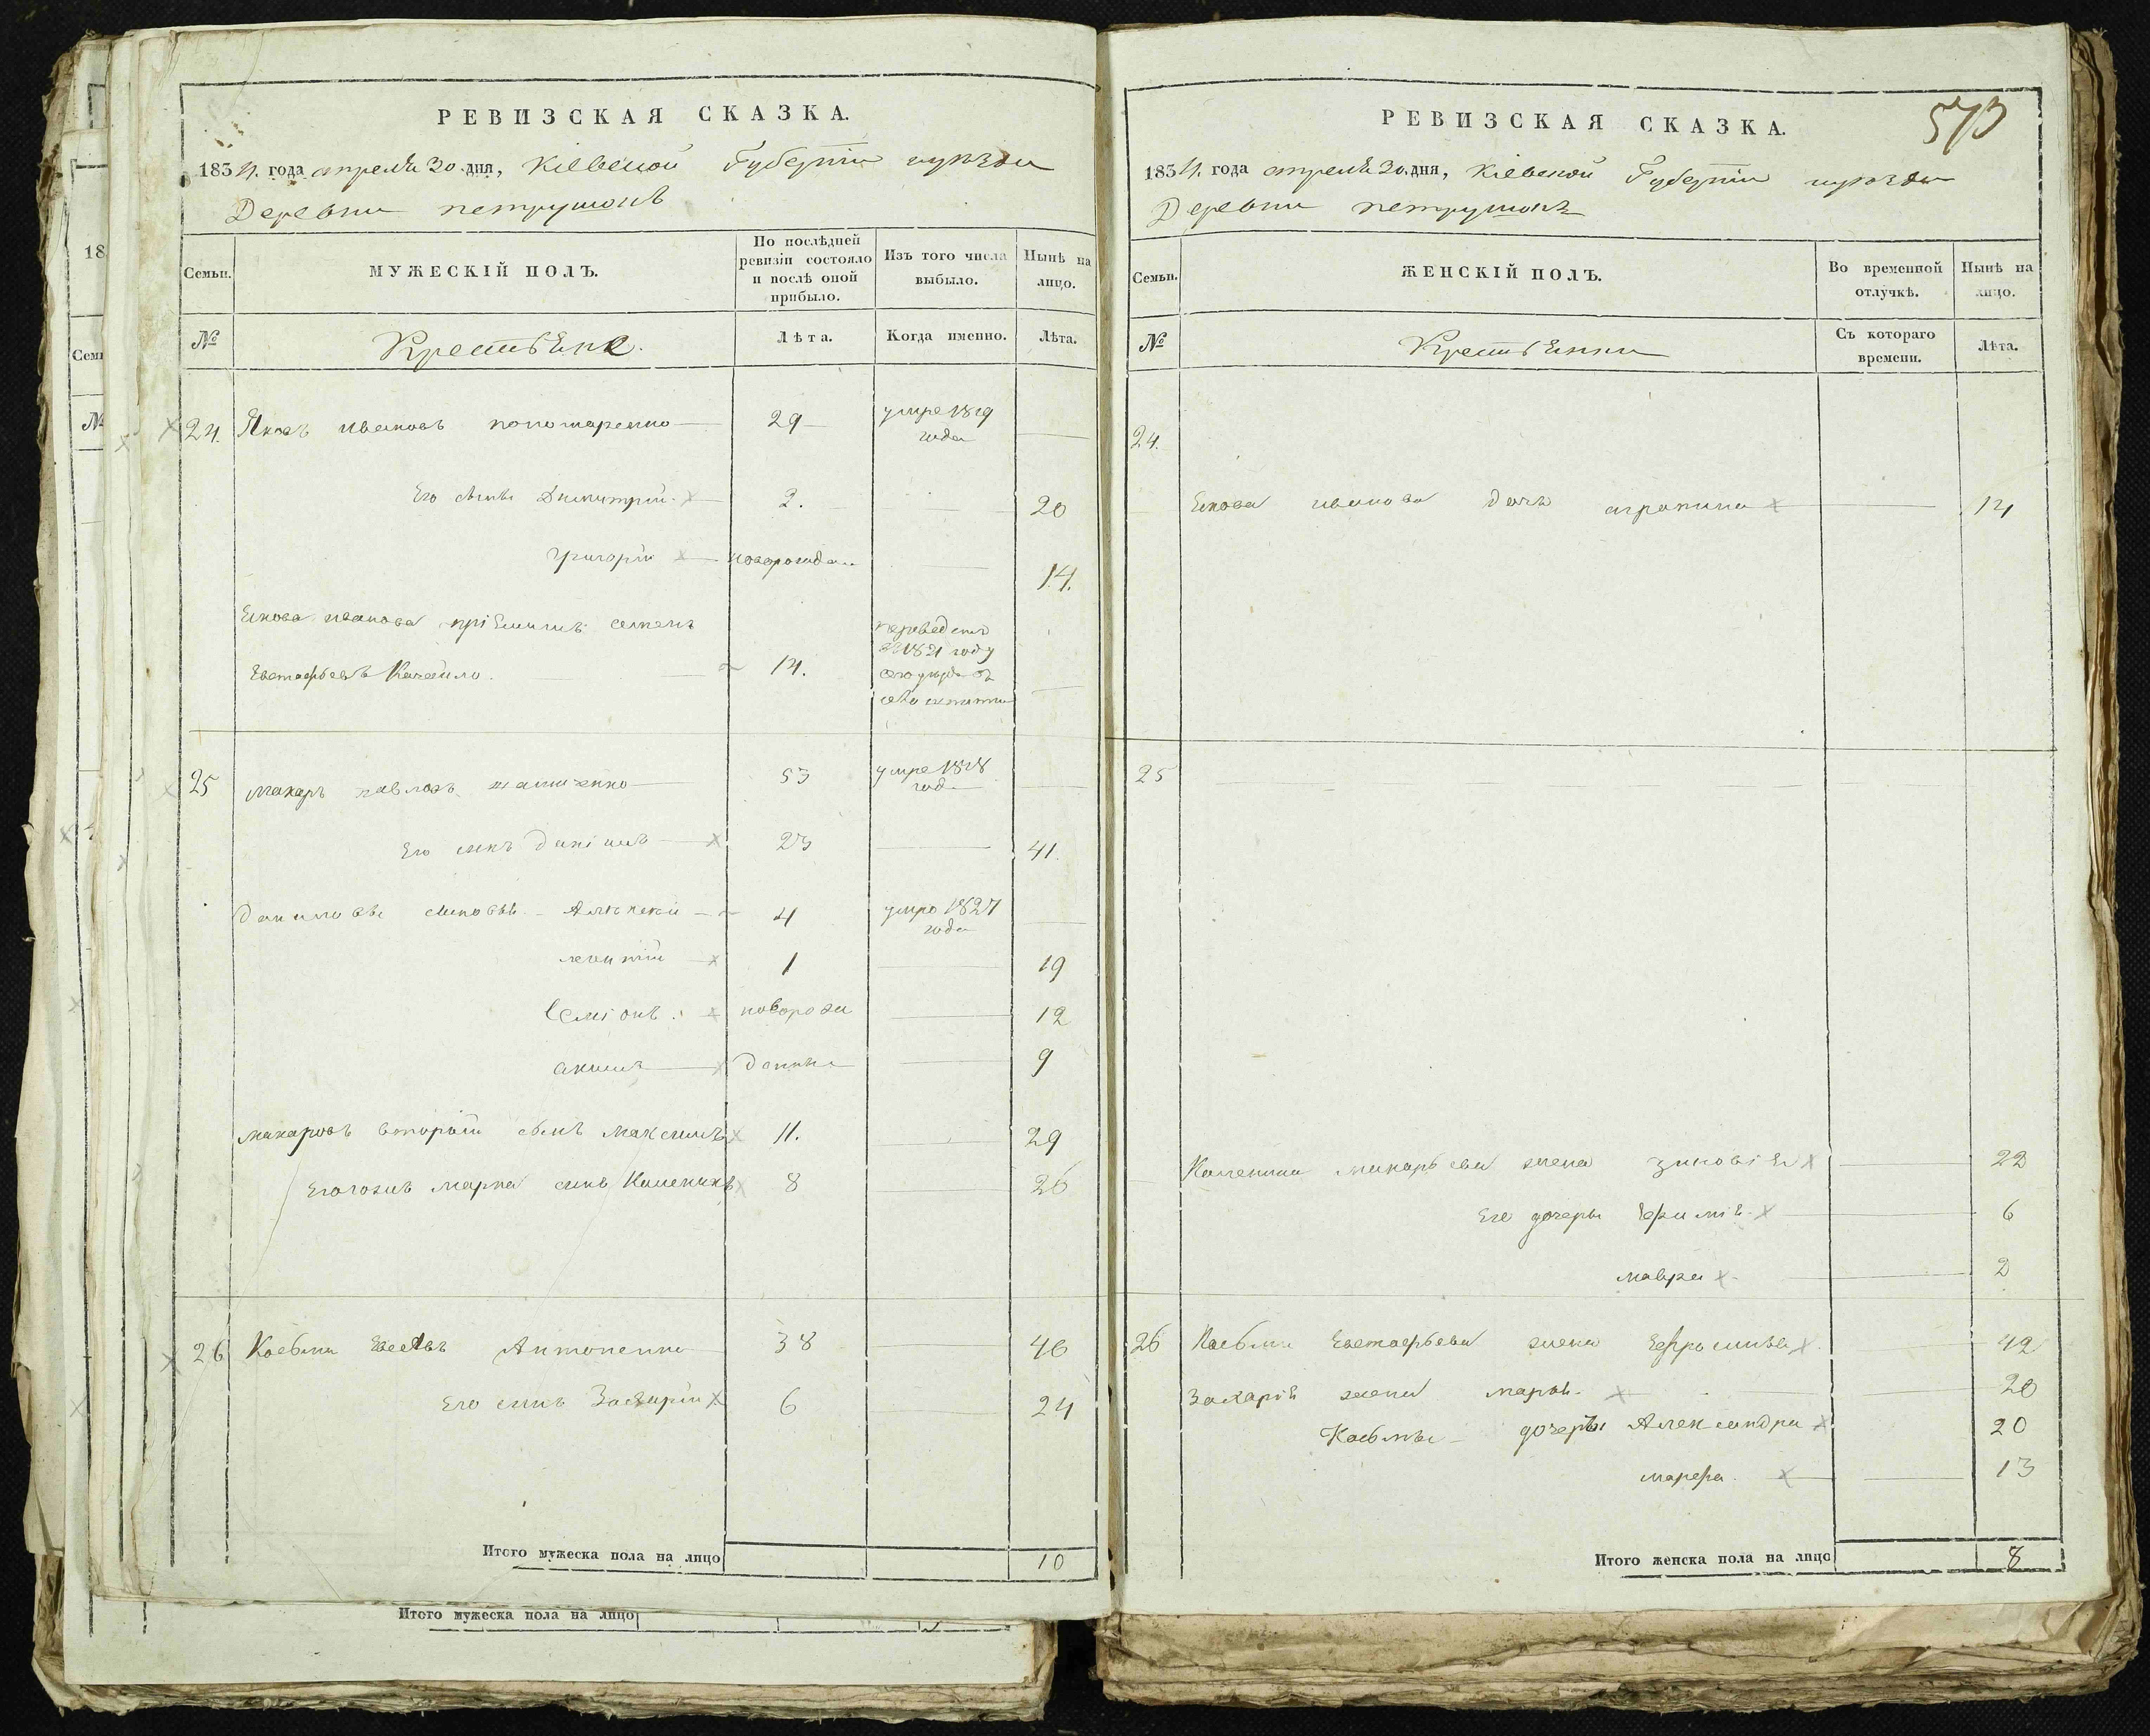 РЕВИЗСКАЯ СКАЗКА.
1834. года апреля 30. дня, Кіевской Губерніи и уезда
Деревни петрушокъ
Семьи.
МУЖЕСКІЙ ПОЛЪ.
По послѣдней ревизіи состояло и послѣ оной прибыло.
Изъ того числа выбыло.
Нынѣ на лицо.
№
Крестьяне.
Лѣта.
Когда именно.
Лѣта.
24 Яковъ ивановъ пономаренко 29 умре 1819 года
Его сынъ Димитрій 2. 20
григорій новорожден 14.
Якова иванова пріемышъ
Евстафьевъ 14. переведенъ 1821 году
25 Макаръ павловъ 53 умре 1828 года
Его сынъ Даніилъ 23 41.
Даниловы сыновья Алексей 4 умре 1827 года
леонтій 1 19
Семіонъ новорож 12
акимъ денные 9
макаровъ вторый сынъ максимъ 11. 29
марка сынъ 8 26
26 Косьма Антоненко 38 46
Его сынъ Захарій 6 24
Итого мужеска пола на лицо 10
Итого мужеска пола на лицо
РЕВИЗСКАЯ СКАЗКА.
573
1834. года апреля 30. дня, Кіевской Губерніи и уезда
Деревни петрушокъ
Семьи.
ЖЕНСКІЙ ПОЛЪ.
Во временной отлучкѣ.
Нынѣ на лицо.
№
Крестьянки
Съ котораго времени.
Лѣта.
24.
Якова иванова дочь агрипина 14
25
макарьева жена зиновія 22
Его дочери 6
мавра 2
26 Косьмы Евстафьева жена Ефросинья 42
Захарія жена марья 20
Косьмы дочери Александра 20
марфа 13
Итого женска пола на лицо 8